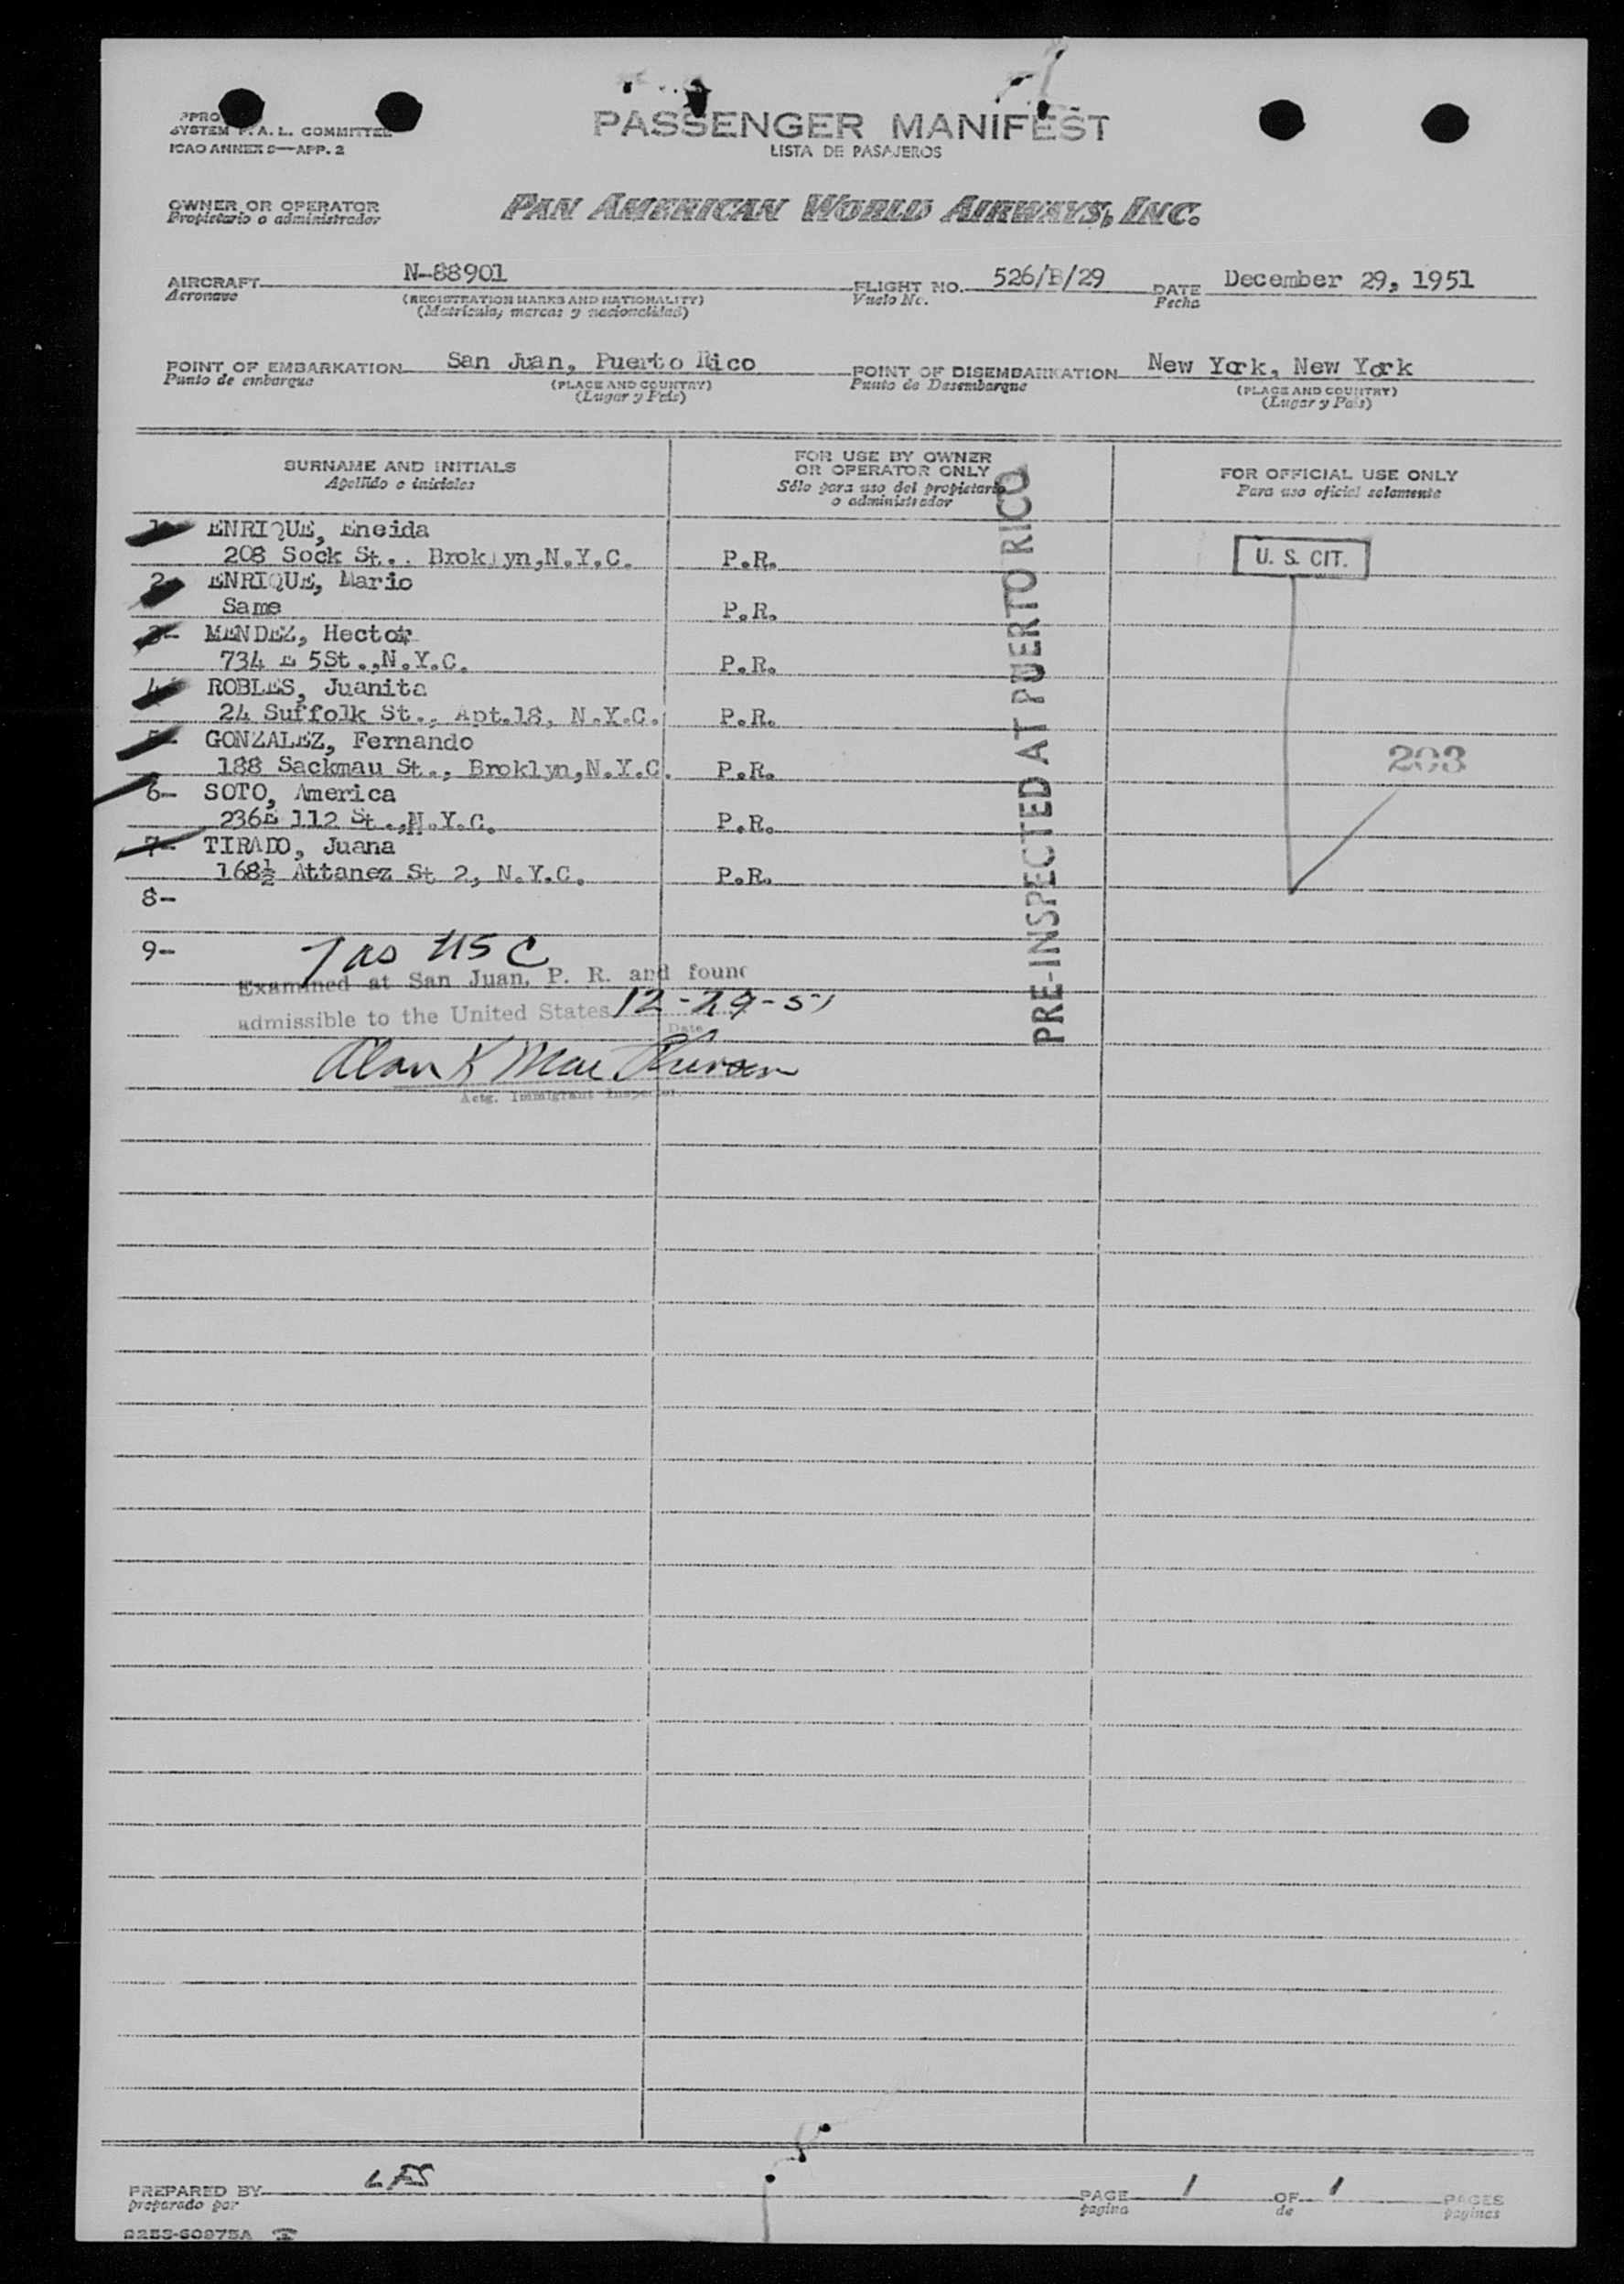 SYSTEM F. A. L. COMMITTEE
ICAO ANNEX 9—APP. 2
PASSENGER MANIFEST
LISTA DE PASAJEROS
OWNER OR OPERATOR
Propietario o administrador
PAN AMERICAN WORLD AIRWAYS, INC.
AIRCRAFT N-88901 FLIGHT NO. 526/B/29 DATE December 29, 1951
Aeronave (REGISTRATION MARKS AND NATIONALITY) Vuelo No. Fecha
(Matrícula, marcas y nacionalidad)
POINT OF EMBARKATION San Juan, Puerto Rico POINT OF DISEMBARKATION New York, New York
Punto de embarque (PLACE AND COUNTRY) Punto de Desembarque (PLACE AND COUNTRY)
(Lugar y País) (Lugar y País)
SURNAME AND INITIALS
Apellido e iniciales
FOR USE BY OWNER
OR OPERATOR ONLY
Sólo para uso del propietario
o administrador
FOR OFFICIAL USE ONLY
Para uso oficial solamente
1- ENRIQUE, Eneida
208 Sock St.. Broklyn,N.Y.C. P.R.
U. S. CIT.
2- ENRIQUE, Mario
Same P.R.
3- MENDEZ, Hector
734 E 5St.,N.Y.C. P.R.
4- ROBLES, Juanita
24 Suffolk St., Apt.18, N.Y.C. P.R.
5- GONZALEZ, Fernando
188 Sackmau St., Broklyn,N.Y.C. P.R.
203
6- SOTO, America
236E 112 St.,N.Y.C. P.R.
7- TIRADO, Juana
168½ Attanez St 2, N.Y.C. P.R.
8-
9-
PRE-INSPECTED AT PUERTO RICO
7 as USC
Examined at San Juan, P. R. and found
admissible to the United States 12-29-51
Date
Alan K Mac
Actg. Immigrant Inspector
PREPARED BY LES PAGE 1 OF 1 PAGES
preparado por pagina de paginas